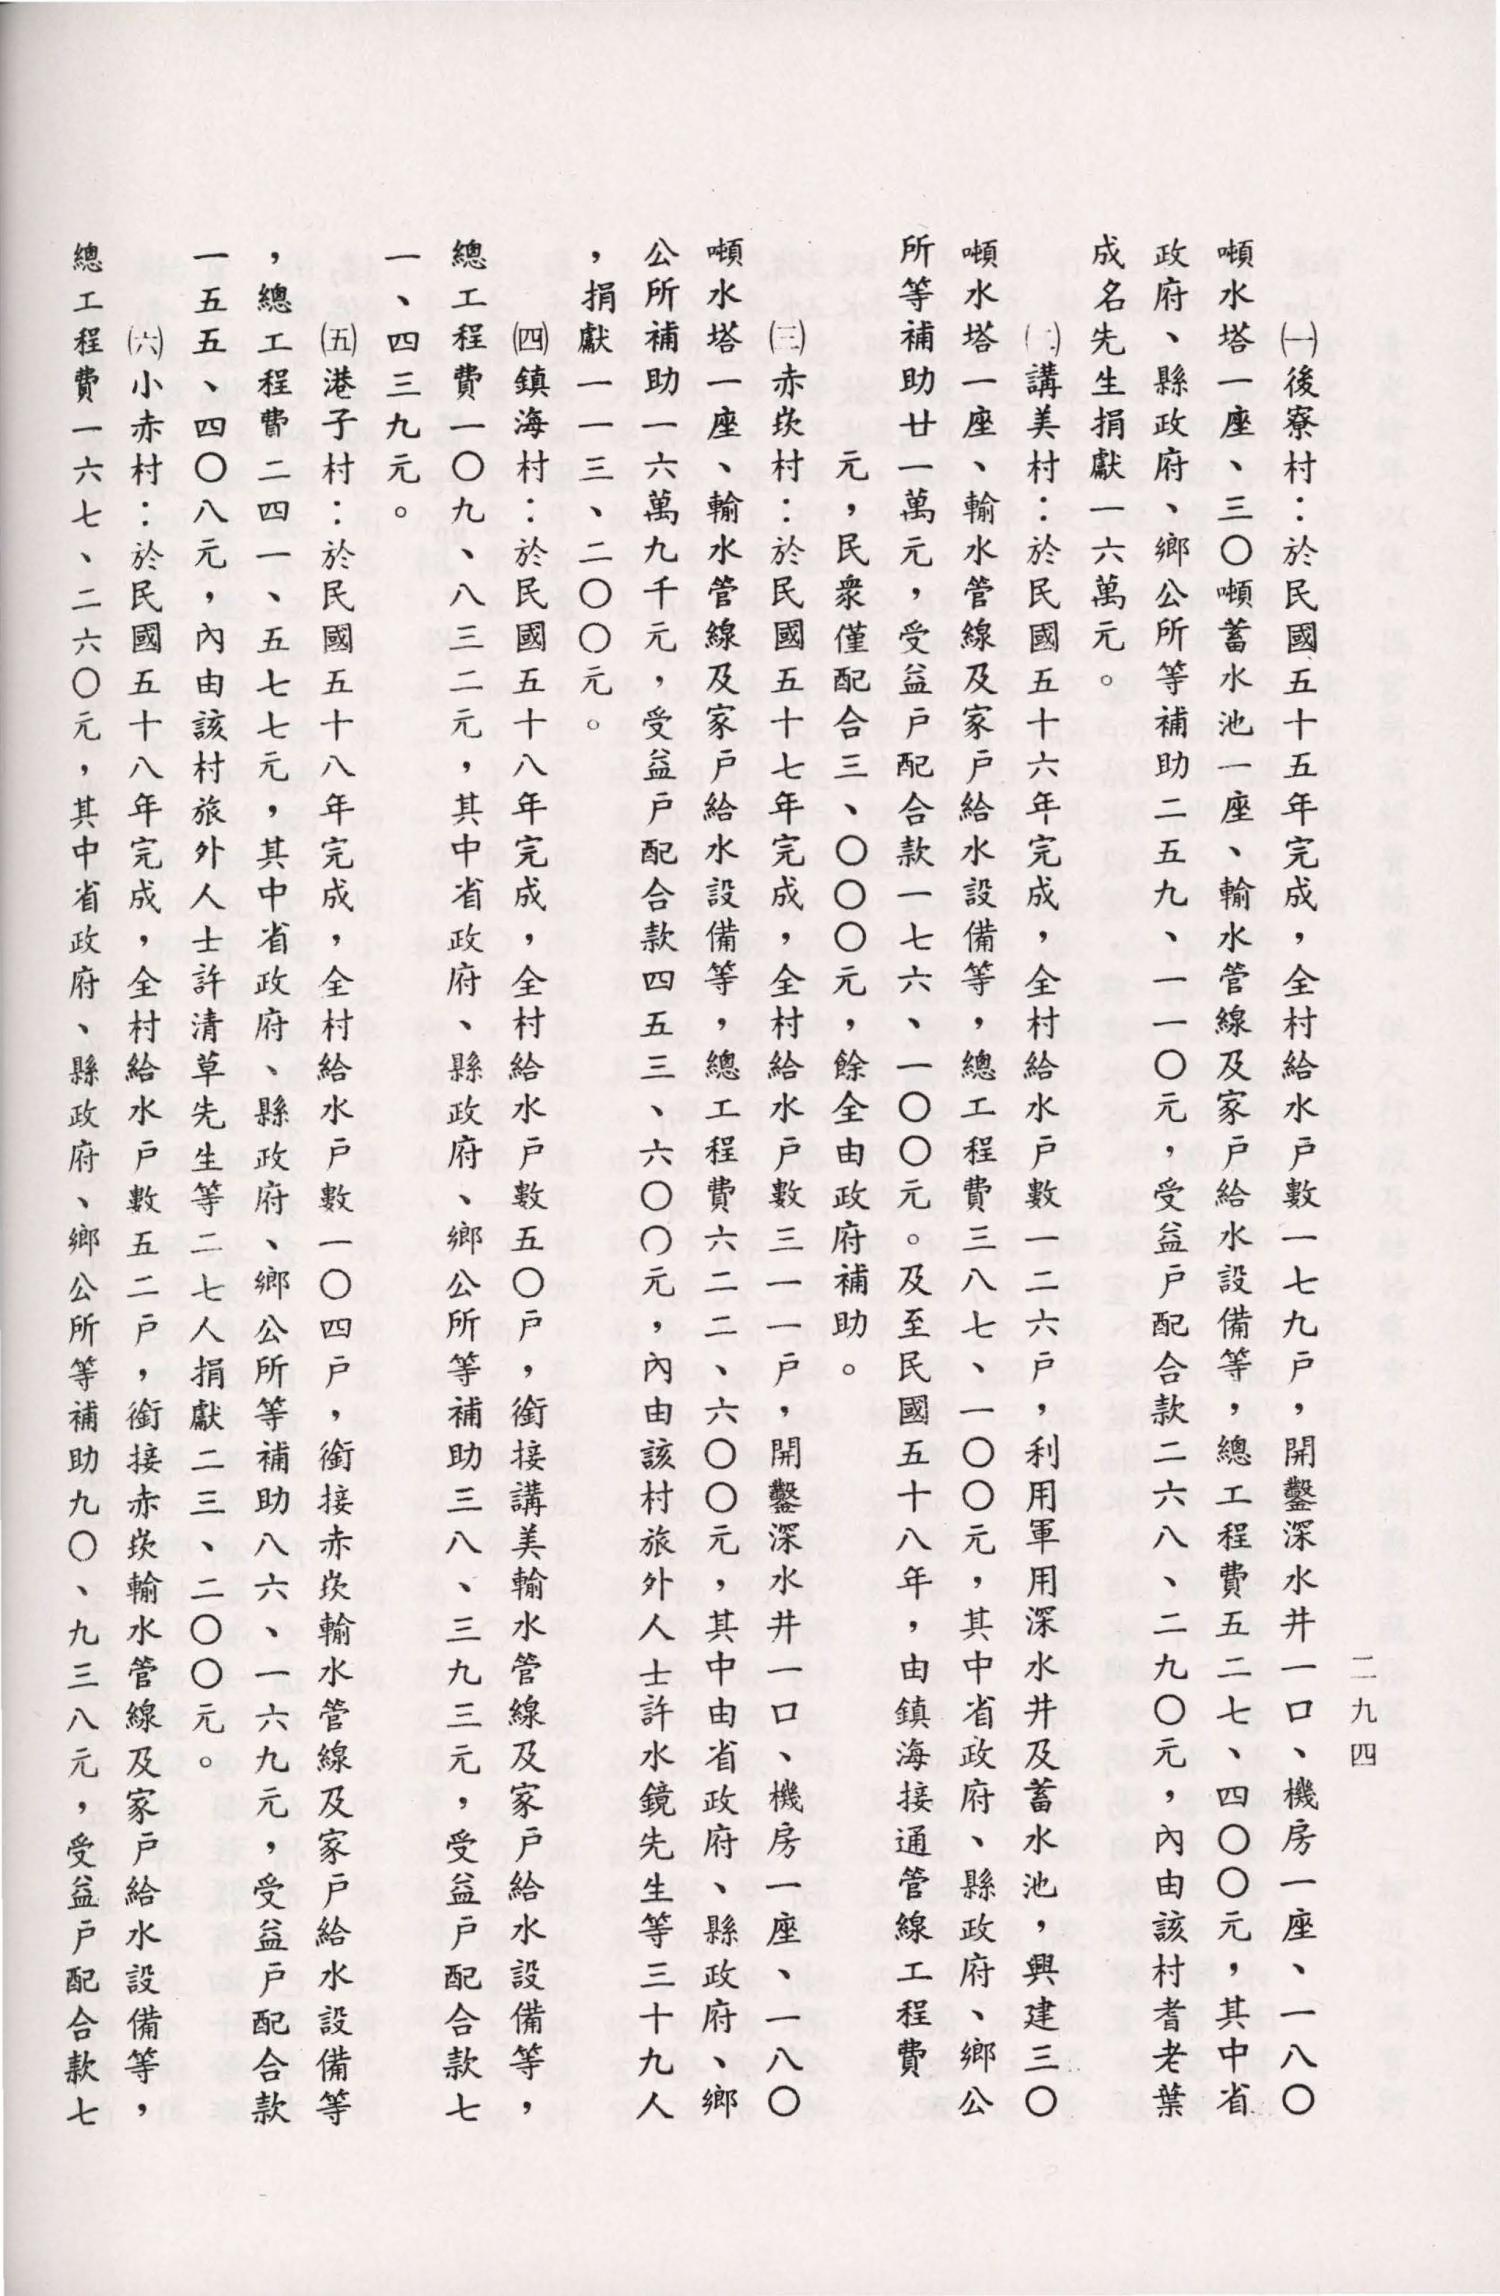 二九四
㈠後寮村：於民國五十五年完成，全村給水戶數一七九戶，開鑿深水井一口、機房一座、一八〇
噸水塔一座、三〇噸蓄水池一座、輸水管線及家戶給水設備等，總工程費五二七、四〇〇元，其中省
政府、縣政府、鄉公所等補助二五九、一一〇元，受益戶配合款二六八、二九〇元，內由該村耆老葉
成名先生捐獻一六萬元。
㈡講美村：於民國五十六年完成，全村給水戶數一二六戶，利用軍用深水井及蓄水池，興建三〇
噸水塔一座、輸水管線及家戶給水設備等，總工程費三八七、一〇〇元，其中省政府、縣政府、鄉公
所等補助廿一萬元，受益戶配合款一七六、一〇〇元。及至民國五十八年，由鎮海接通管線工程費
元，民衆僅配合三、〇〇〇元，餘全由政府補助。
㈢赤崁村：於民國五十七年完成，全村給水戶數三一一戶，開鑿深水井一口、機房一座、一八〇
噸水塔一座、輸水管線及家戶給水設備等，總工程費六二二、六〇〇元，其中由省政府、縣政府、鄉
公所補助一六萬九千元，受益戶配合款四五三、六〇〇元，內由該村旅外人士許水鏡先生等三十九人
，捐獻一一三、二〇〇元。
㈣鎮海村：於民國五十八年完成，全村給水戶數五〇戶，銜接講美輸水管線及家戶給水設備等，
總工程費一〇九、八三二元，其中省政府、縣政府、鄉公所等補助三八、三九三元，受益戶配合款七
一、四三九元。
㈤港子村：於民國五十八年完成，全村給水戶數一〇四戶，銜接赤崁輸水管線及家戶給水設備等
，總工程費二四一、五七七元，其中省政府、縣政府、鄉公所等補助八六、一六九元，受益戶配合款
一五五、四〇八元，內由該村旅外人士許清草先生等二七人捐獻二三、二〇〇元。
㈥小赤村：於民國五十八年完成，全村給水戶數五二戶，銜接赤崁輸水管線及家戶給水設備等，
總工程費一六七、二六〇元，其中省政府、縣政府、鄉公所等補助九〇、九三八元，受益戶配合款七